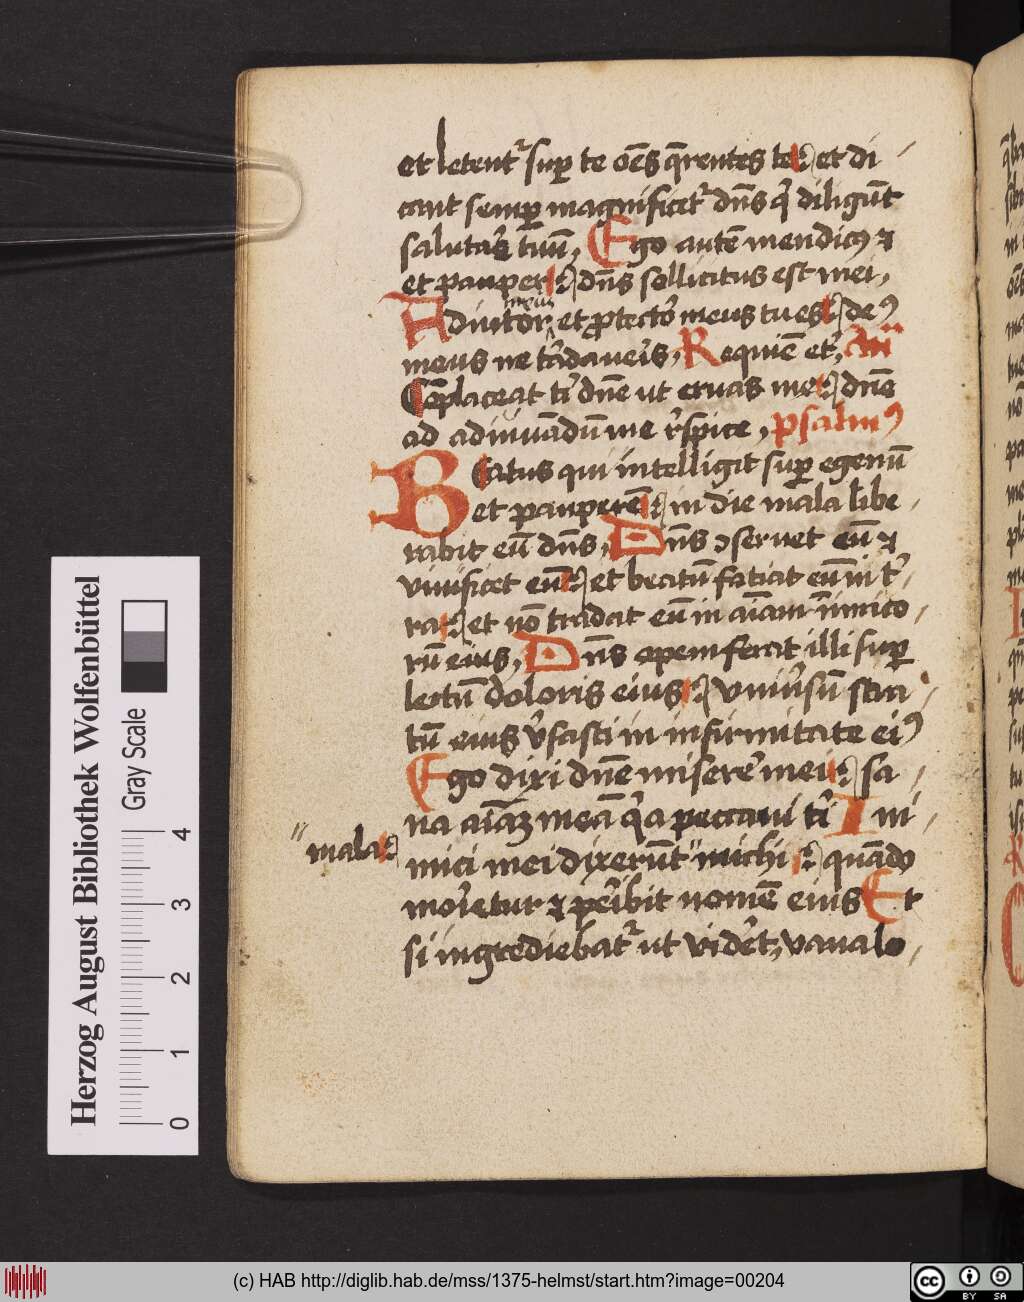 et letent᷑ sup te oēs q̄rentes te : et di
cant semp magnificet᷑ dn̄s q̇ diligūt
salutar̄ tuū, Ego autē mendicꝰ ⁊
et pauper : dn̄s sollicitus est mei,
Adiutor meus et ꝓtecto᷑ meus tu es : deꝰ
meus ne ta᷑daueīs, Requiē et᷑, Añ
Cōplaceat ti᷑ dn̄e ut eruas me : dn̄e
ad adiuuādū me r᷑spice, psalmꝰ
Beatus qui intelligit sup egenū
et pauperē : in die mala libe
rabit eū dn̄s, Dn̄s ɔseruet eū ⁊
viuificet eū : et beatū faciat eū in t᷑
ra : et nō tradat eū in aīam inimico
rū eius, Dn̄s opem ferat illi sup
lectū doloris eius : vniu᷑sū stra
tū eius v᷑sasti in infirmitate eiꝰ
Ego dixi dn̄e misere᷑ mei : sa
na aīaꝫ meā q᷑a peccaui ti᷑ Ini
mala :
mici mei dixerūt " michi : quādo
morietur ⁊ peribit nomē eius Et
si ingrediebat᷑ ut videt᷑, vana lo
Herzog August Bibliothek Wolfenbüttel
Gray Scale
0 1 2 3 4
(c) HAB http://diglib.hab.de/mss/1375-helmst/start.htm?image=00204
cc BY SA